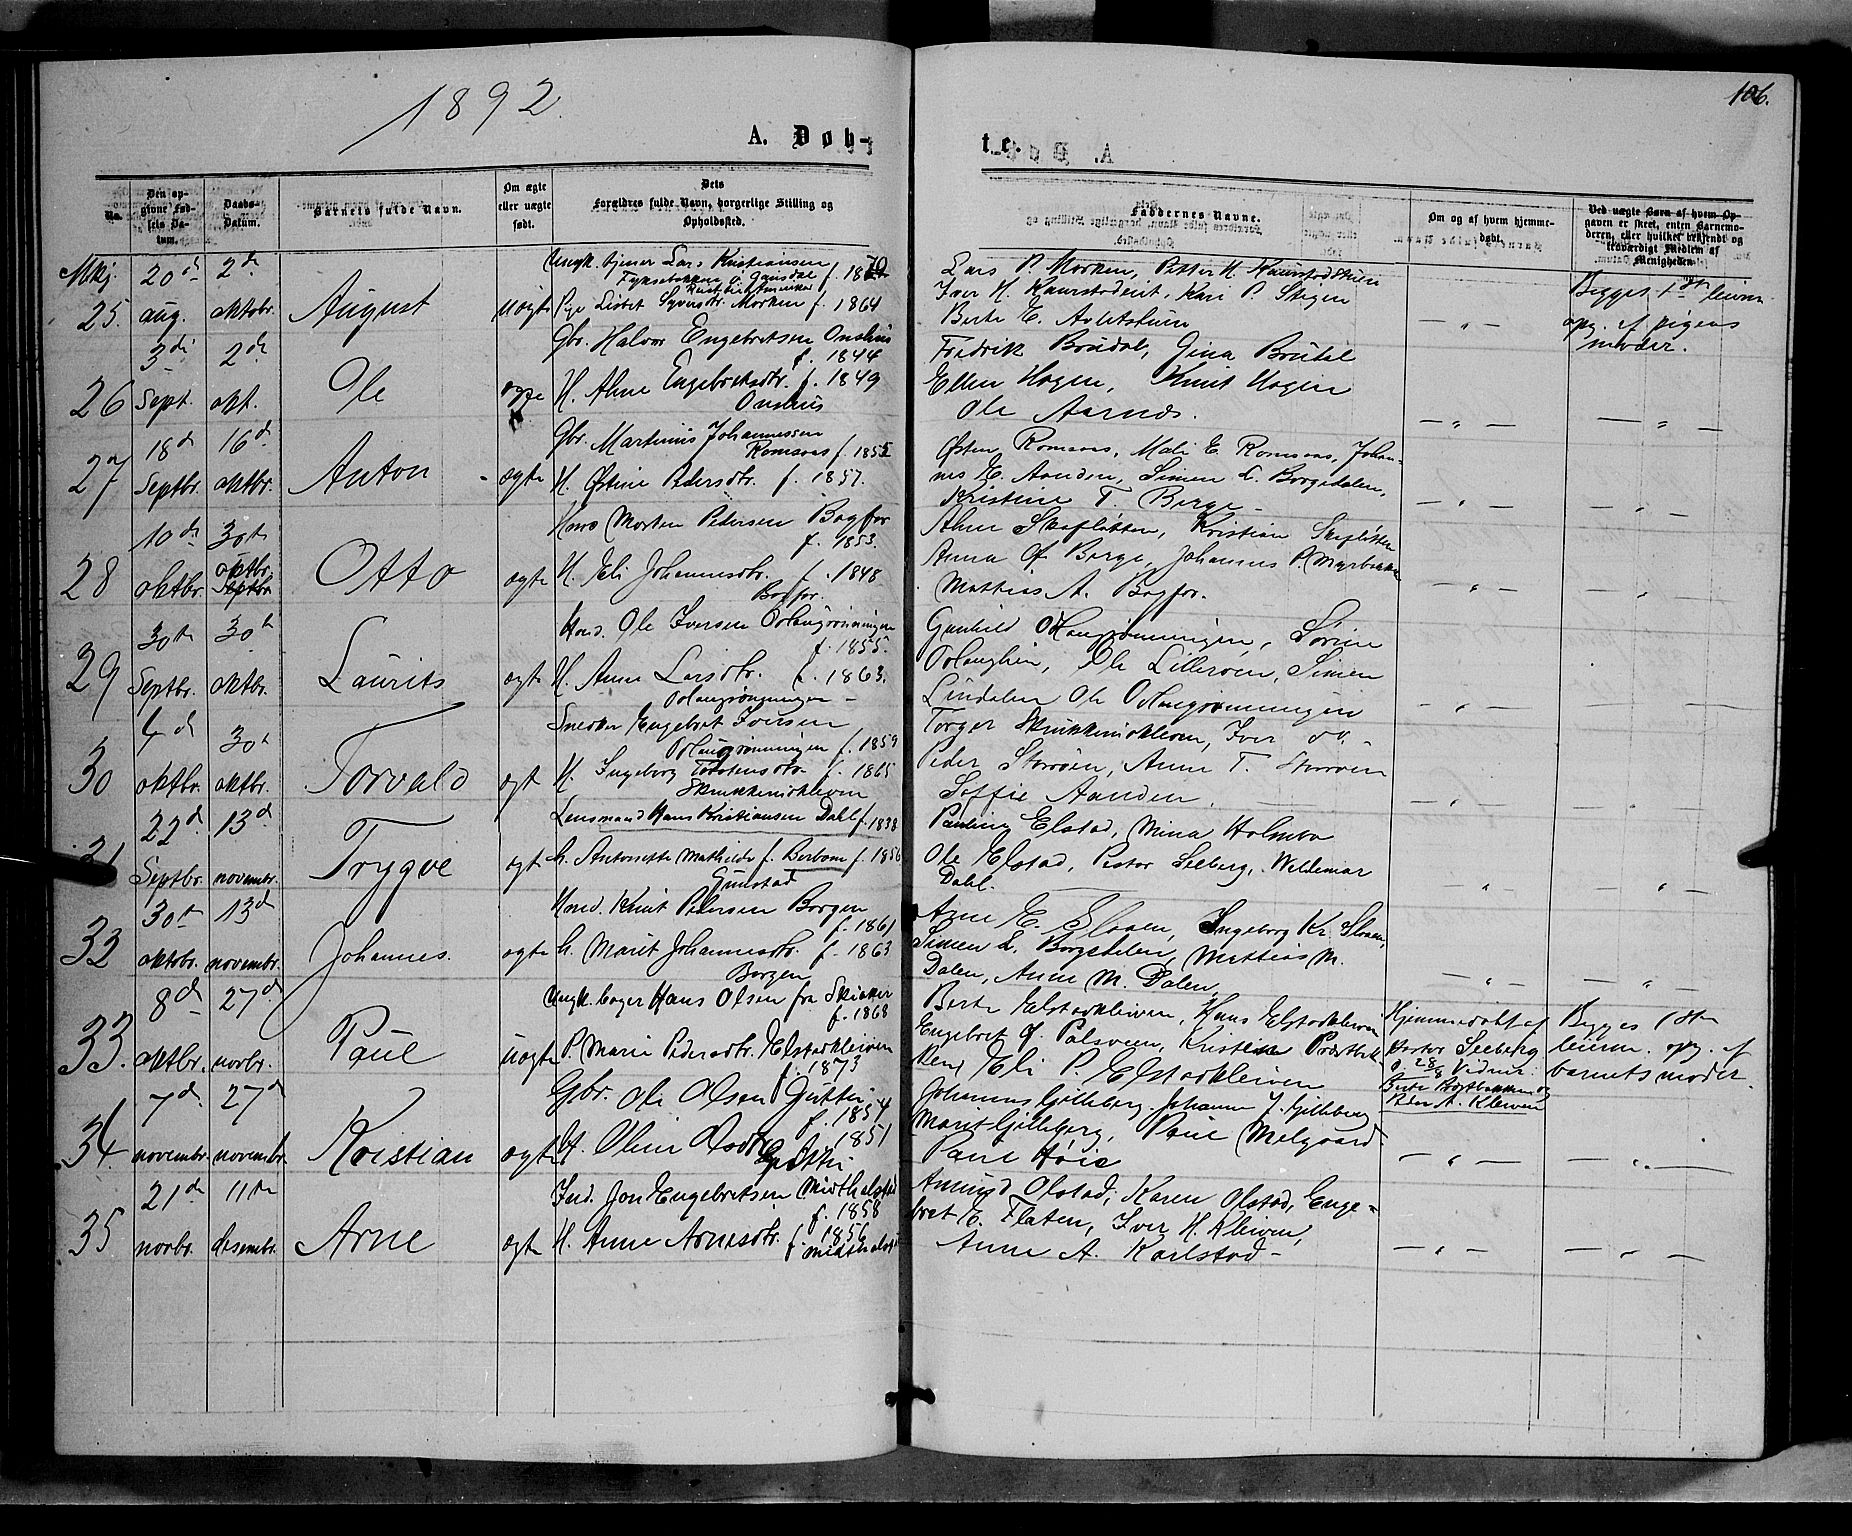 1892.
106.
A. Døb-
t e.
No.
Den opgivne Fødsels Datum.
Daabs-Datum.
Barnets fulde Navn.
Om ægte eller uægte født.
Dets Forældres fulde Navn, borgerlige Stilling og Opholdssted.
Faddernes Navne.
Om og af hvem hjemmedøbt.
Ved uægte Børn af hvem Opgaven er skeet, enten Barnemoderen, eller hvilket bekjendt og troværdigt Medlem af Menigheden.
25. 20de aug. 2de oktobr. August uægte
Ungk. tjener Lars Kristiansen
i Gausdal f. 1870
Pge Lisbet Syversdtr. Morken f. 1864
Lars P. Morken, Petter H.
Iver H. Kari P. Stigen
Berte E.
Begges 1ste leierm.
opg. af pigens
moder.
26 3di Sept. 2de okt. Ole ægte
Gbr. Halvor Engebretsen Onshus
f. 1844
H. Ahne Engebretsdtr. f. 1849
Onshus
Fredrik Brudal, Gina Brudal
Ellen Hagen, Knut Hagen
Ole Aarnes.
27 18de Septbr. 16de oktbr. Anton ægte
Gbr. Martinus Johannessen
Romsaas f. 1855
H. Østine Pedersdtr. f. 1857.
Østen Romsaas, Mali E. Romsaas, Johan-
nes E. Aanden, Simen L. Borgedalen,
Kristine T. Berge
28 10de oktbr. 30te oktbr. Septbr. Otto ægte
Hmd Morten Pedersen Bogfor
f. 1853.
H. Eli Johannesdtr. f. 1848
Bogfor.
Ahne Skafløtten, Kristian Skafløtten
Anna O. Berge, Johannes P. Myrbakken
Mattias A. Bogfor.
29 30te Septbr. 30te oktbr. Laurits ægte
Hmd. Ole Iversen Odlaugrønningen
f. 1855.
H. Anne Larsdtr. f. 1863.
Odlaugrønningen
Gunhild Odlaugrønningen, Søren
Odlaughen, Ole Lillerøen, Simen
Lindalen Ole Odlaugrønningen
30 4de oktbr. 30te oktbr. Torvald ægt
Snedker Engebret Iversen
Odlaugrønningen f. 1859
H. Ingeborg Torstensdtr. f. 1865
Skrukkerudkleven
Torger Skrukkerudkleven, Iver do.
Peder Storøen, Anne T. Storøen
Soffie Aanden.
31 22de Septbr. 13de novembr. Trygve ægt
Lensmand Hans Kristiansen Dahl f. 1838
H. Antonette Mathilde f. Berbom f. 1856
Gunstad
Pauline Elstad, Mina Holmbo
Ole Elstad, Pastor Seeberg, Weldemar
Dahl.
32 30te oktobr. 13de novembr. Johannes. ægte
Hmd. Knut Pedersen Borgen
f. 1861
H. Marit Johannesdtr. f. 1863
Borgen
Arne E. Sloaen, Ingeborg Kr. Sloaen,
Simen L. Borgedalen, Mattias M.
Dalen, Anne M. Dalen,
33. 8de oktbr. 27de novbr. Paul uægte
Ungk. Hans Olsen fra Skiaker
f. 1868
P. Marie Pedersdtr. Elstadkleiven
f. 1873
Berte Elstadkleiven, Hans Elstadkleiven
Engebret O. Palsveen,
Eli P. Elstadkleiven
Hjemmedøbt af
Pastor Seeberg
Peder A. Kleiven
Begges 1ste
leierm. opg. af
barnets moder.
34. 7de novembr. 27de novembr. Kristian ægte
Gbr. Ole Olsen Guttu
f. 1854
H. Oline Olsdtr. 1851
Guttu
Johannes Gilleberg, Johanne J. Gilleberg
Marit Gilleberg, Paul Melgaard
Paul Høie
35 21de novbr. 11te desembr. Arne ægte
Ind. Jon Engebretsen Midthalstad
f. 1858
H. Anne Arnesdtr. f. 1856
Amund Olstad, Karen Olstad, Enge-
bret E. Flaten, Iver H. Kleiven,
Anne A. Karlstad